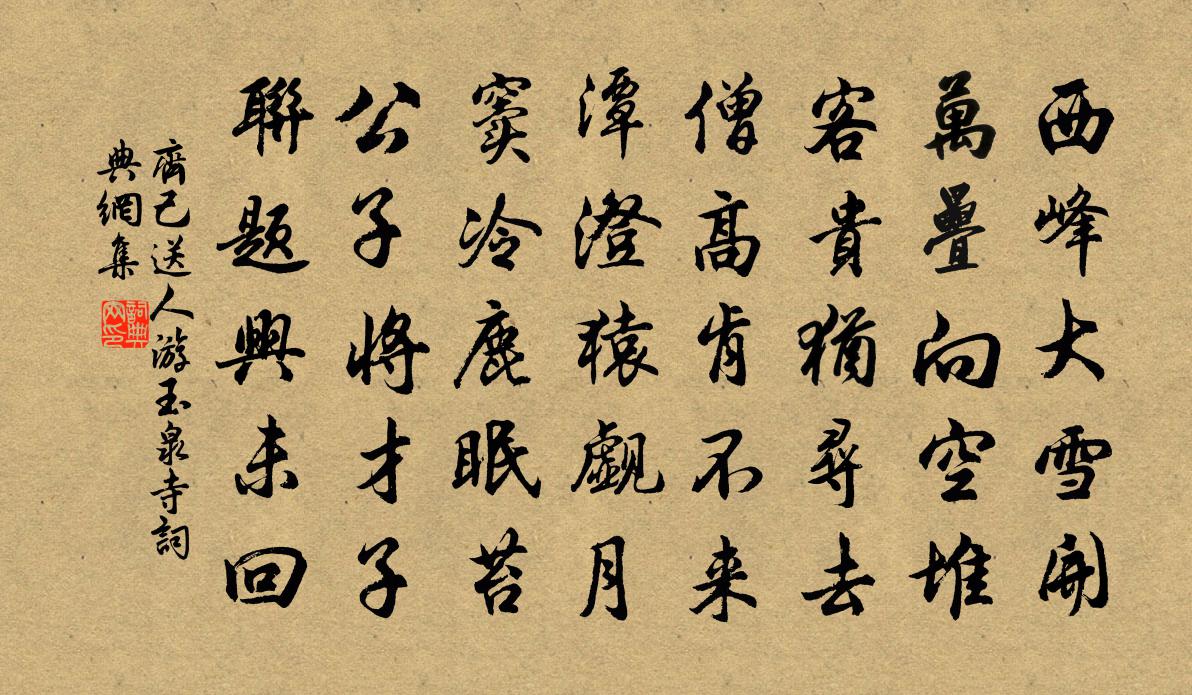 西峰大雪開
萬疊向空堆
客貴猶尋去
僧高肯不來
潭澄猿觑月
竇冷鹿眠苔
公子將才子
聯題興未回
齊己送人游玉泉寺詞
典網集
詞典
网印